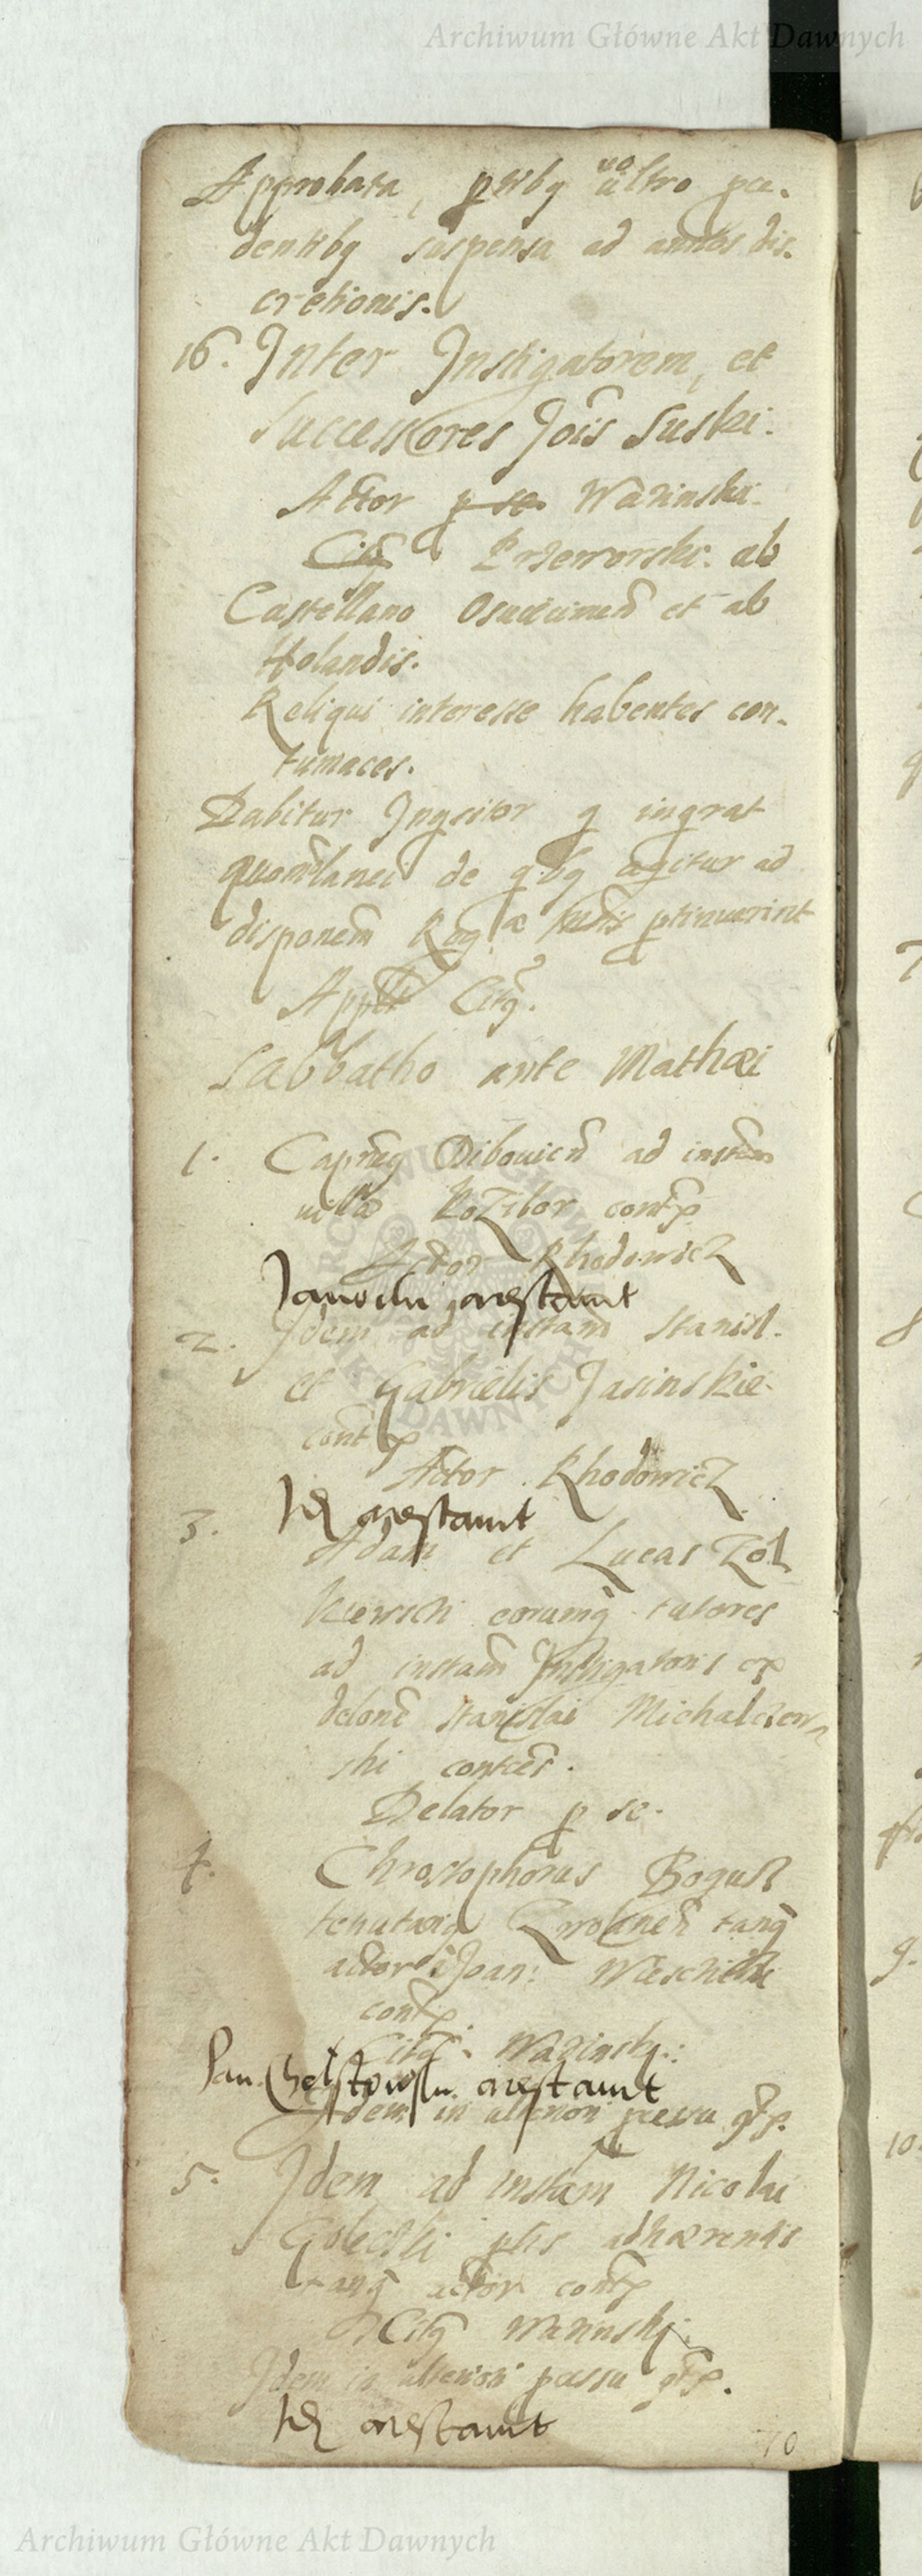 Archiwum Główne Akt Dawnych
Approbata, ptibq uo ultro pce-
dentibq suspensa ad annos dis-
cretionis.
16. Inter Instigatorem, et
Successores Jois Suski.
Actor p se Wazinski.
Citq Przeworski. ab
Castellano et ab
Holandis.
Reliqui interesse habentes con-
tumaces.
Dabitur Inqsitor q inqrat
lanei de qbq agitur ad
disponem Rog ptinuerint
Applt Citq.
Sabbatho ante Mathæi
1. Capneq Dibouien ad instam
uillæ Kozibor contp
Actor Rhodowicz
Janowski arestauit
2. Idem ad instam Stanisl.
et Gabrielis Jasinskie.
contp
Actor Rhodowicz
Id arestauit
3. Adam et Lucas Zol
kiewsci eorumq tutores
ad instam Instigatoris ex
delone Stanislai Michalczew-
ski contes.
Delator p se.
4. Christophorus Bogusz
tenutariq tanq
actor Joan:
contp.
Citq. Wazinski:
Pan Chelstowski arestauit
Idem in ulteriori passu
5. Idem ad instam Nicolai
Golecki ptis adhærentis
tanq actor contp
Citq
Idem in ulteriori passu
Id arestauit
70
Archiwum Główne Akt Dawnych